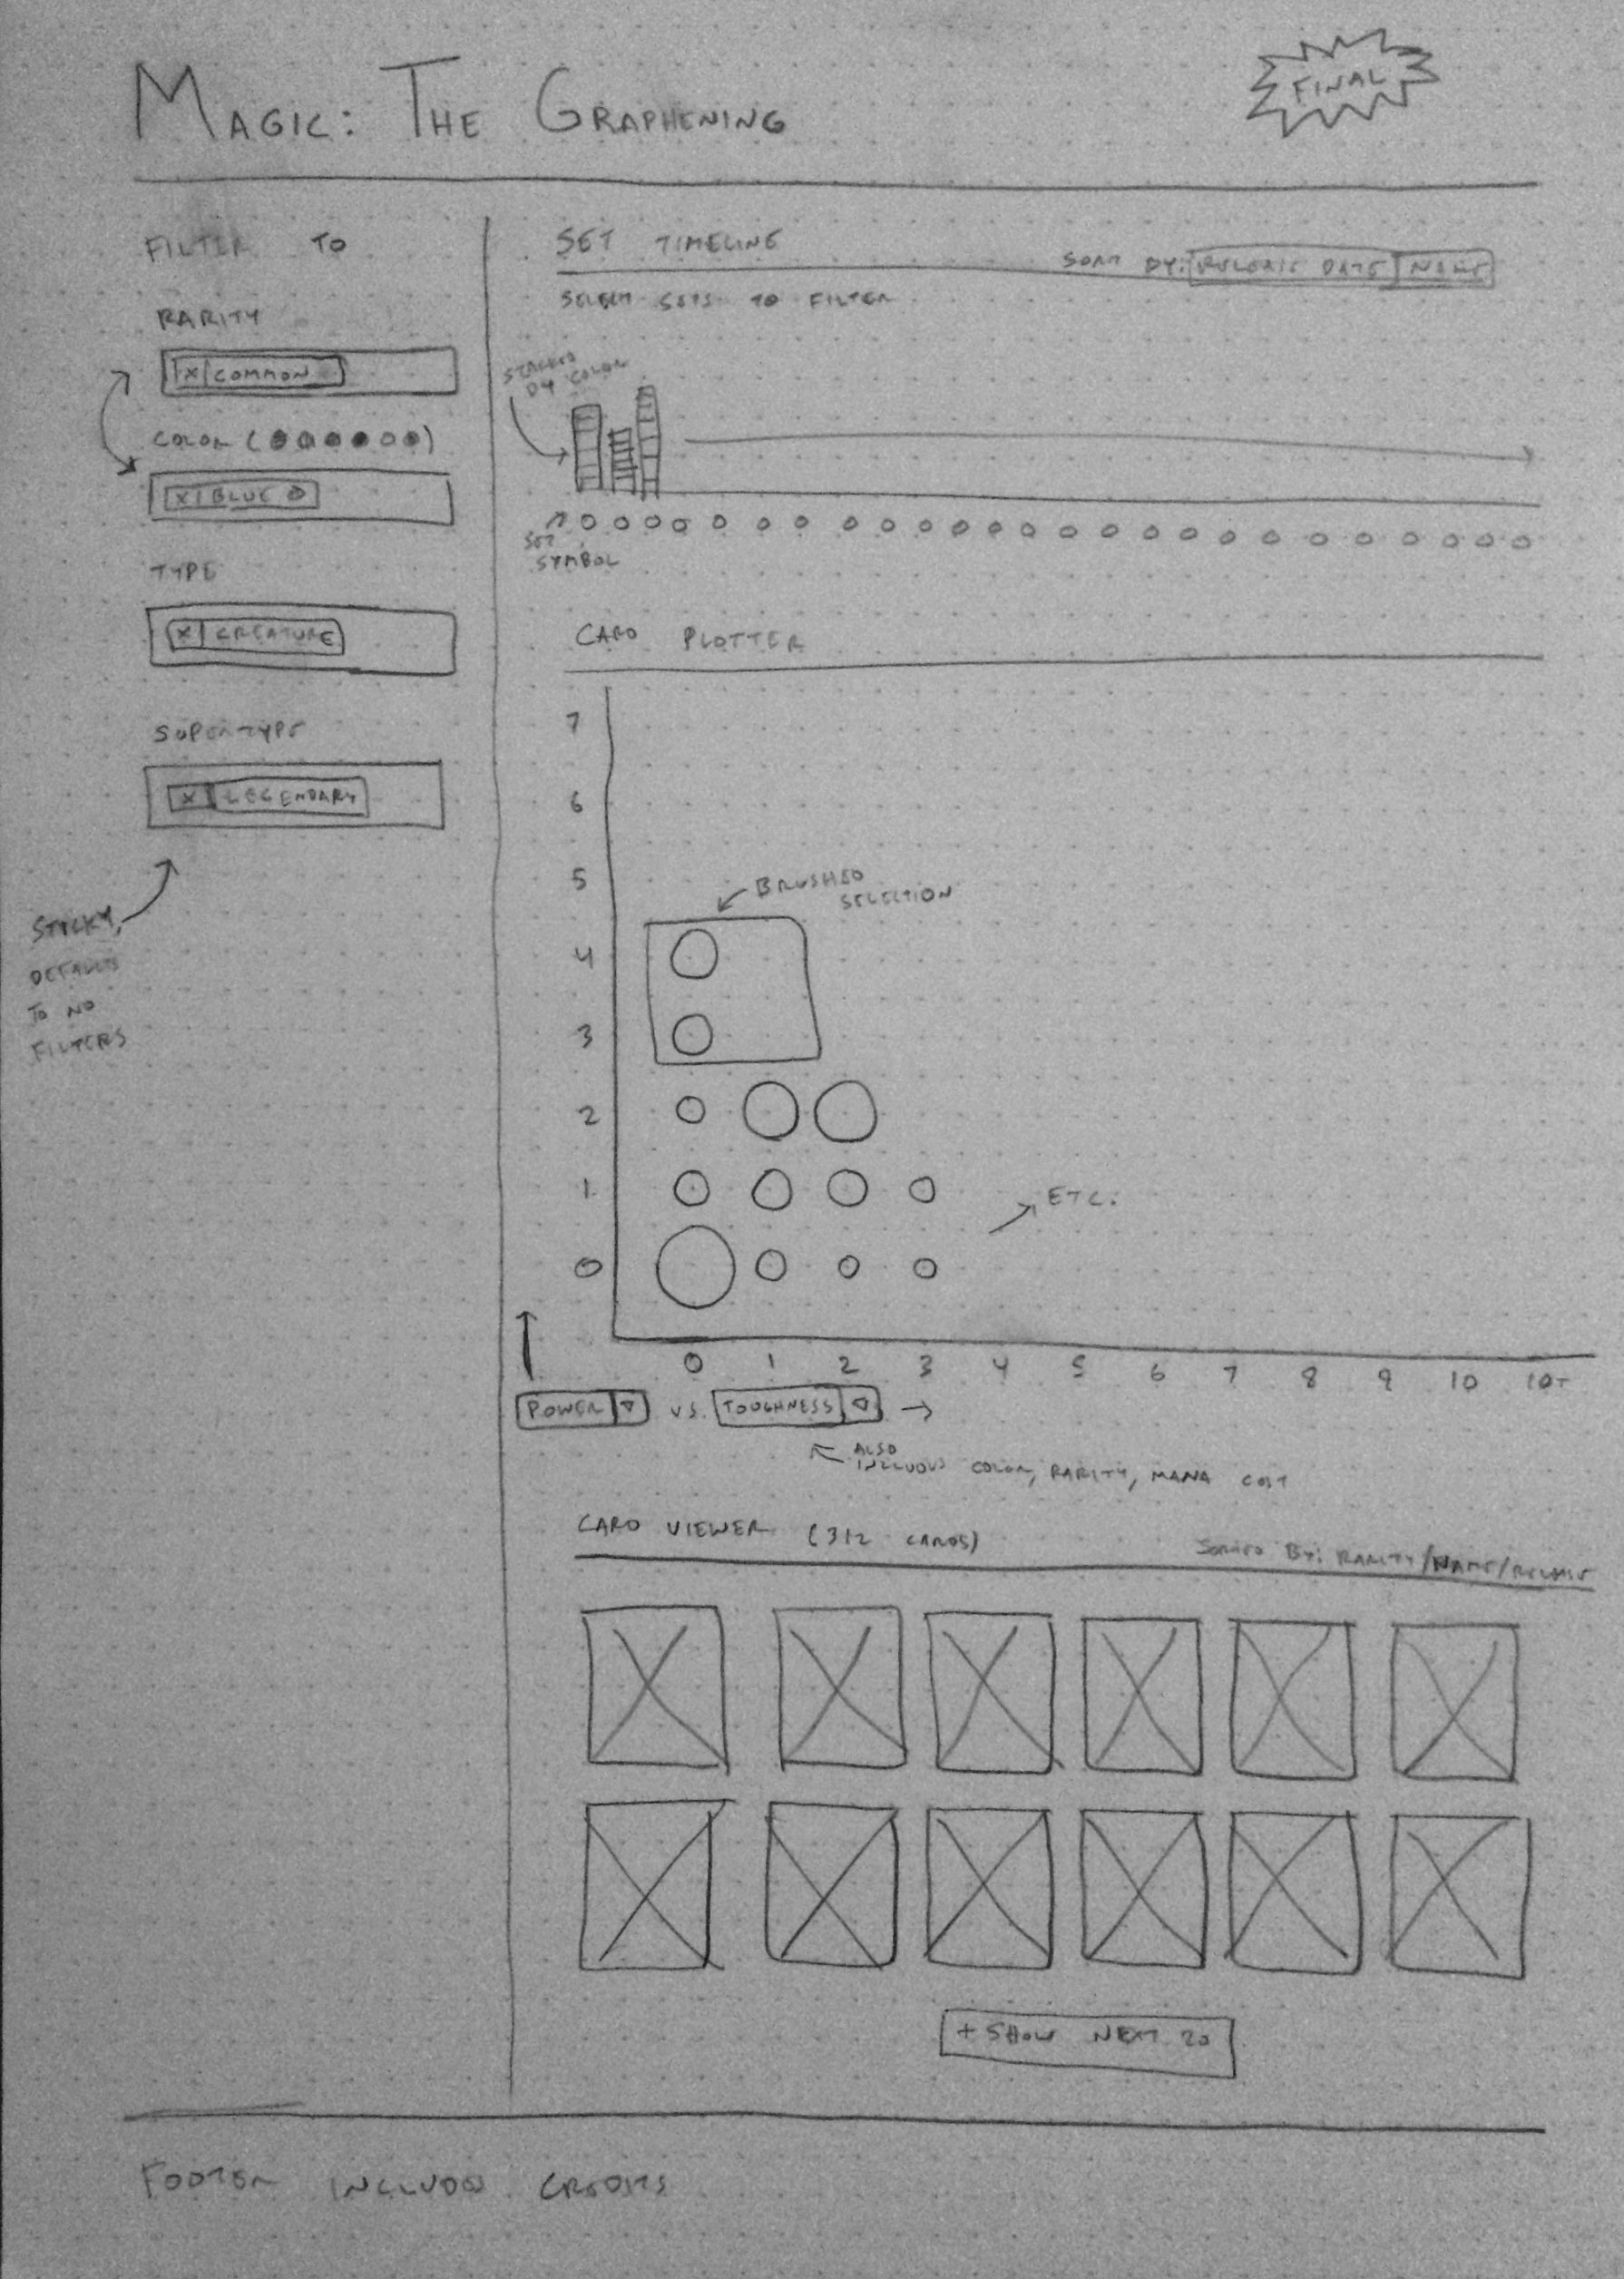 MAGIC: THE GRAPHENING
FINAL
FILTER TO
RARITY
X COMMON
COLOR ( )
X BLUE
TYPE
X CREATURE
SUPERTYPE
X LEGENDARY
STICKY,
DEFAULTS
TO NO
FILTERS
SET TIMELINE
SORT BY: RELEASE DATE NAME
SELECT SETS TO FILTER
STACKED
BY COLOR
SET
SYMBOL
CARD PLOTTER
7
6
5
BRUSHED
SELECTION
4
3
2
1
ETC.
0
0 1 2 3 4 5 6 7 8 9 10 10+
POWER VS. TOUGHNESS
ALSO
INCLUDES COLOR, RARITY, MANA COST
CARD VIEWER (312 CARDS)
SORTED BY: RARITY/NAME/RELEASE
+ SHOW NEXT 20
FOOTER INCLUDES CREDITS